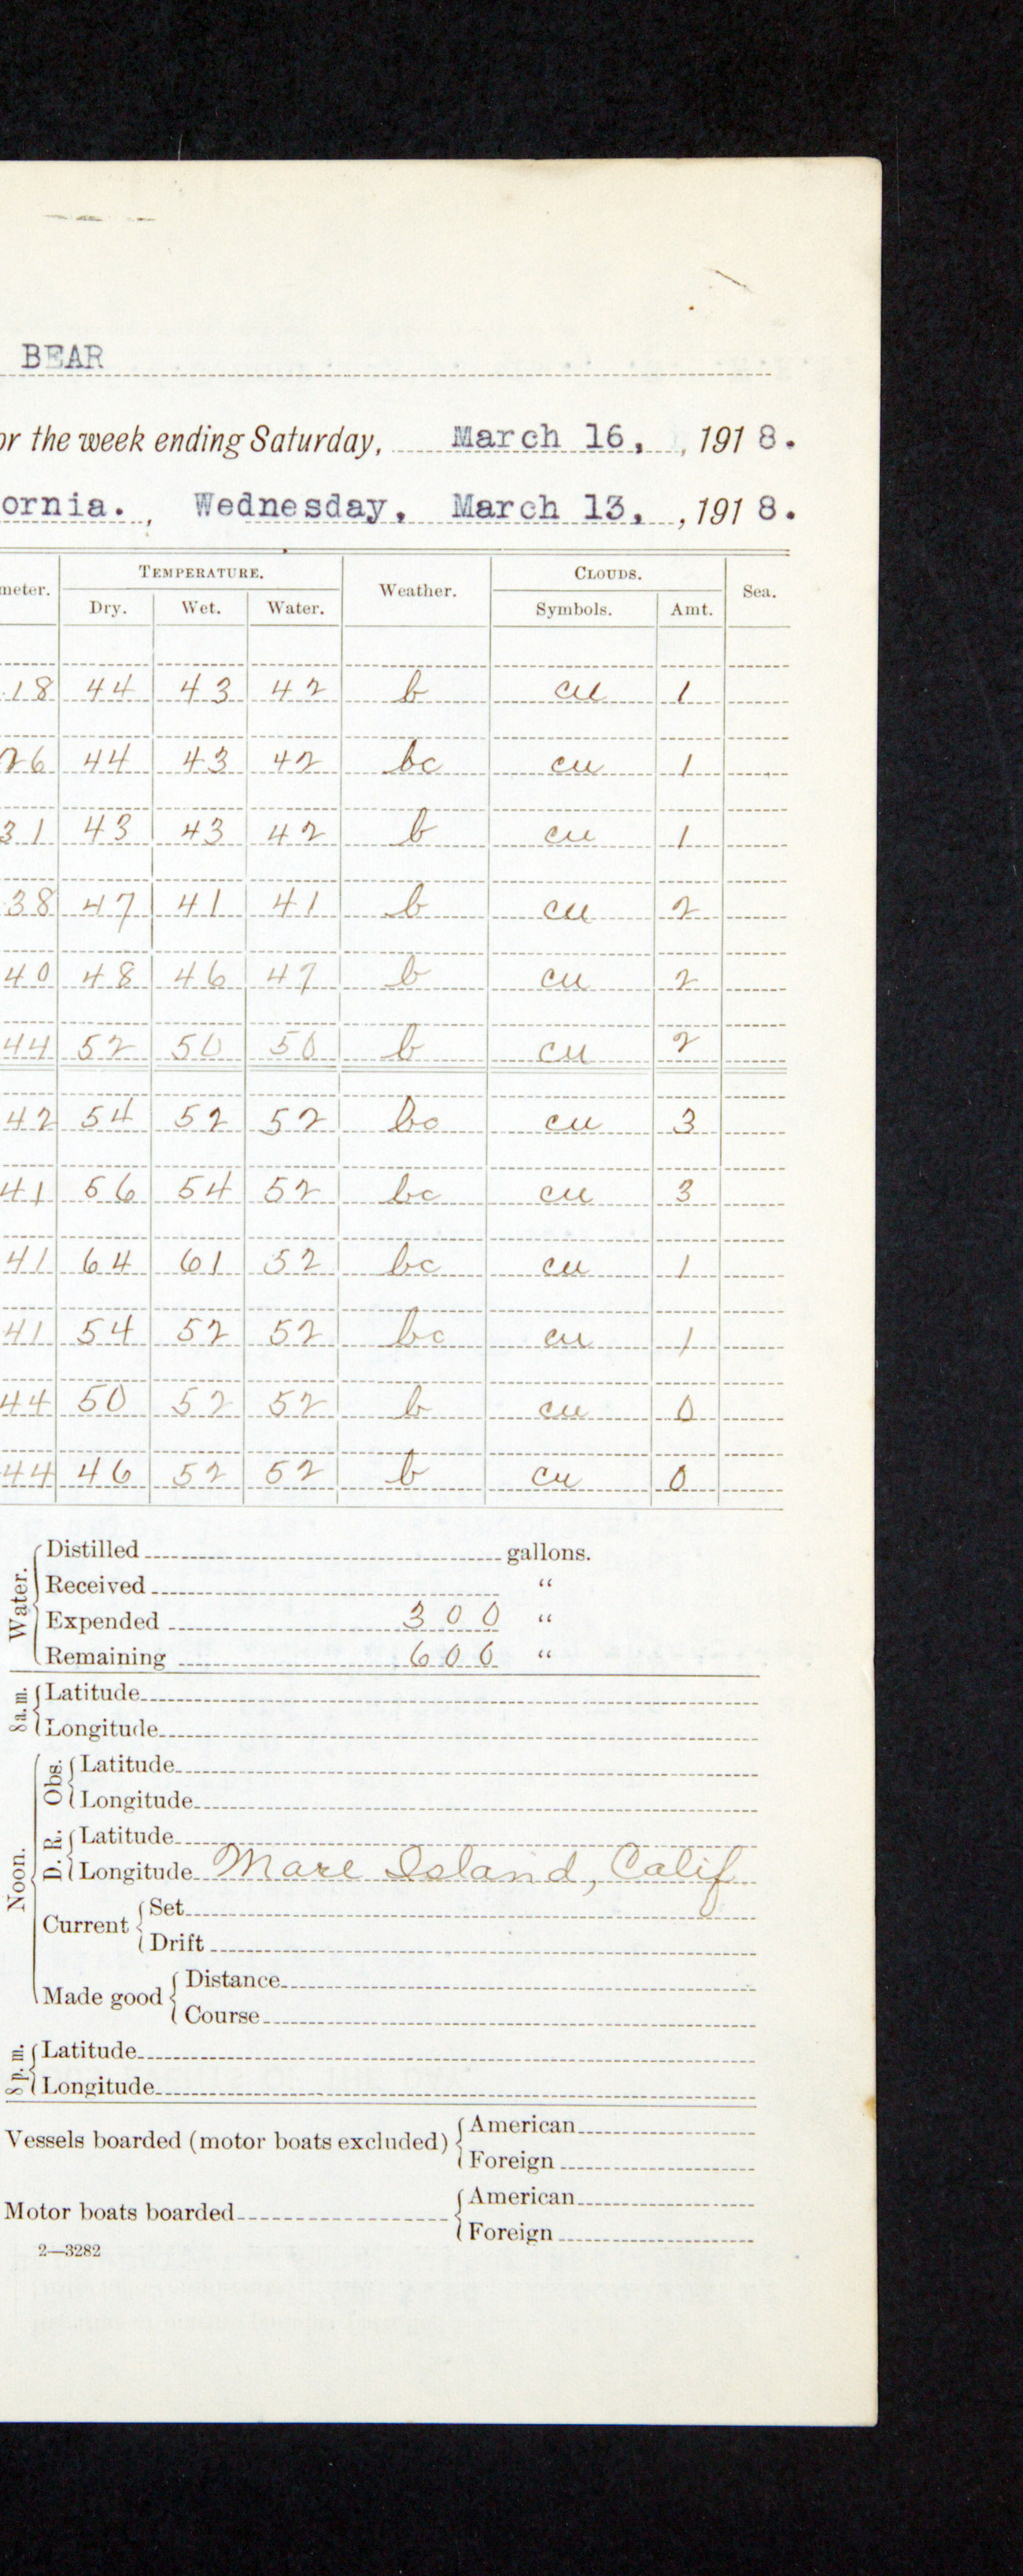 BEAR
or the week ending Saturday, March 16, , 1918.
ornia. , Wednesday, March 13, , 1918.
meter. TEMPERATURE. Weather. CLOUDS. Sea.
Dry. Wet. Water. Symbols. Amt.
.18 44 43 42 b cu 1
26 44 43 42 bc cu 1
31 43 43 42 b cu 1
38 47 41 41 b cu 2
40 48 46 47 b cu 2
44 52 50 50 b cu 2
42 54 52 52 bc cu 3
41 56 54 52 bc cu 3
41 64 61 52 bc cu 1
41 54 52 52 bc cu 1
44 50 52 52 b cu 0
44 46 52 52 b cu 0
Water.
Distilled gallons.
Received "
Expended 300 "
Remaining 600 "
8 a.m.
Latitude
Longitude
Noon.
Obs.
Latitude
Longitude
D. R.
Latitude
Longitude Mare Island, Calif
Current
Set
Drift
Made good
Distance
Course
8 p.m.
Latitude
Longitude
Vessels boarded (motor boats excluded)
American
Foreign
Motor boats boarded
American
Foreign
2—3282